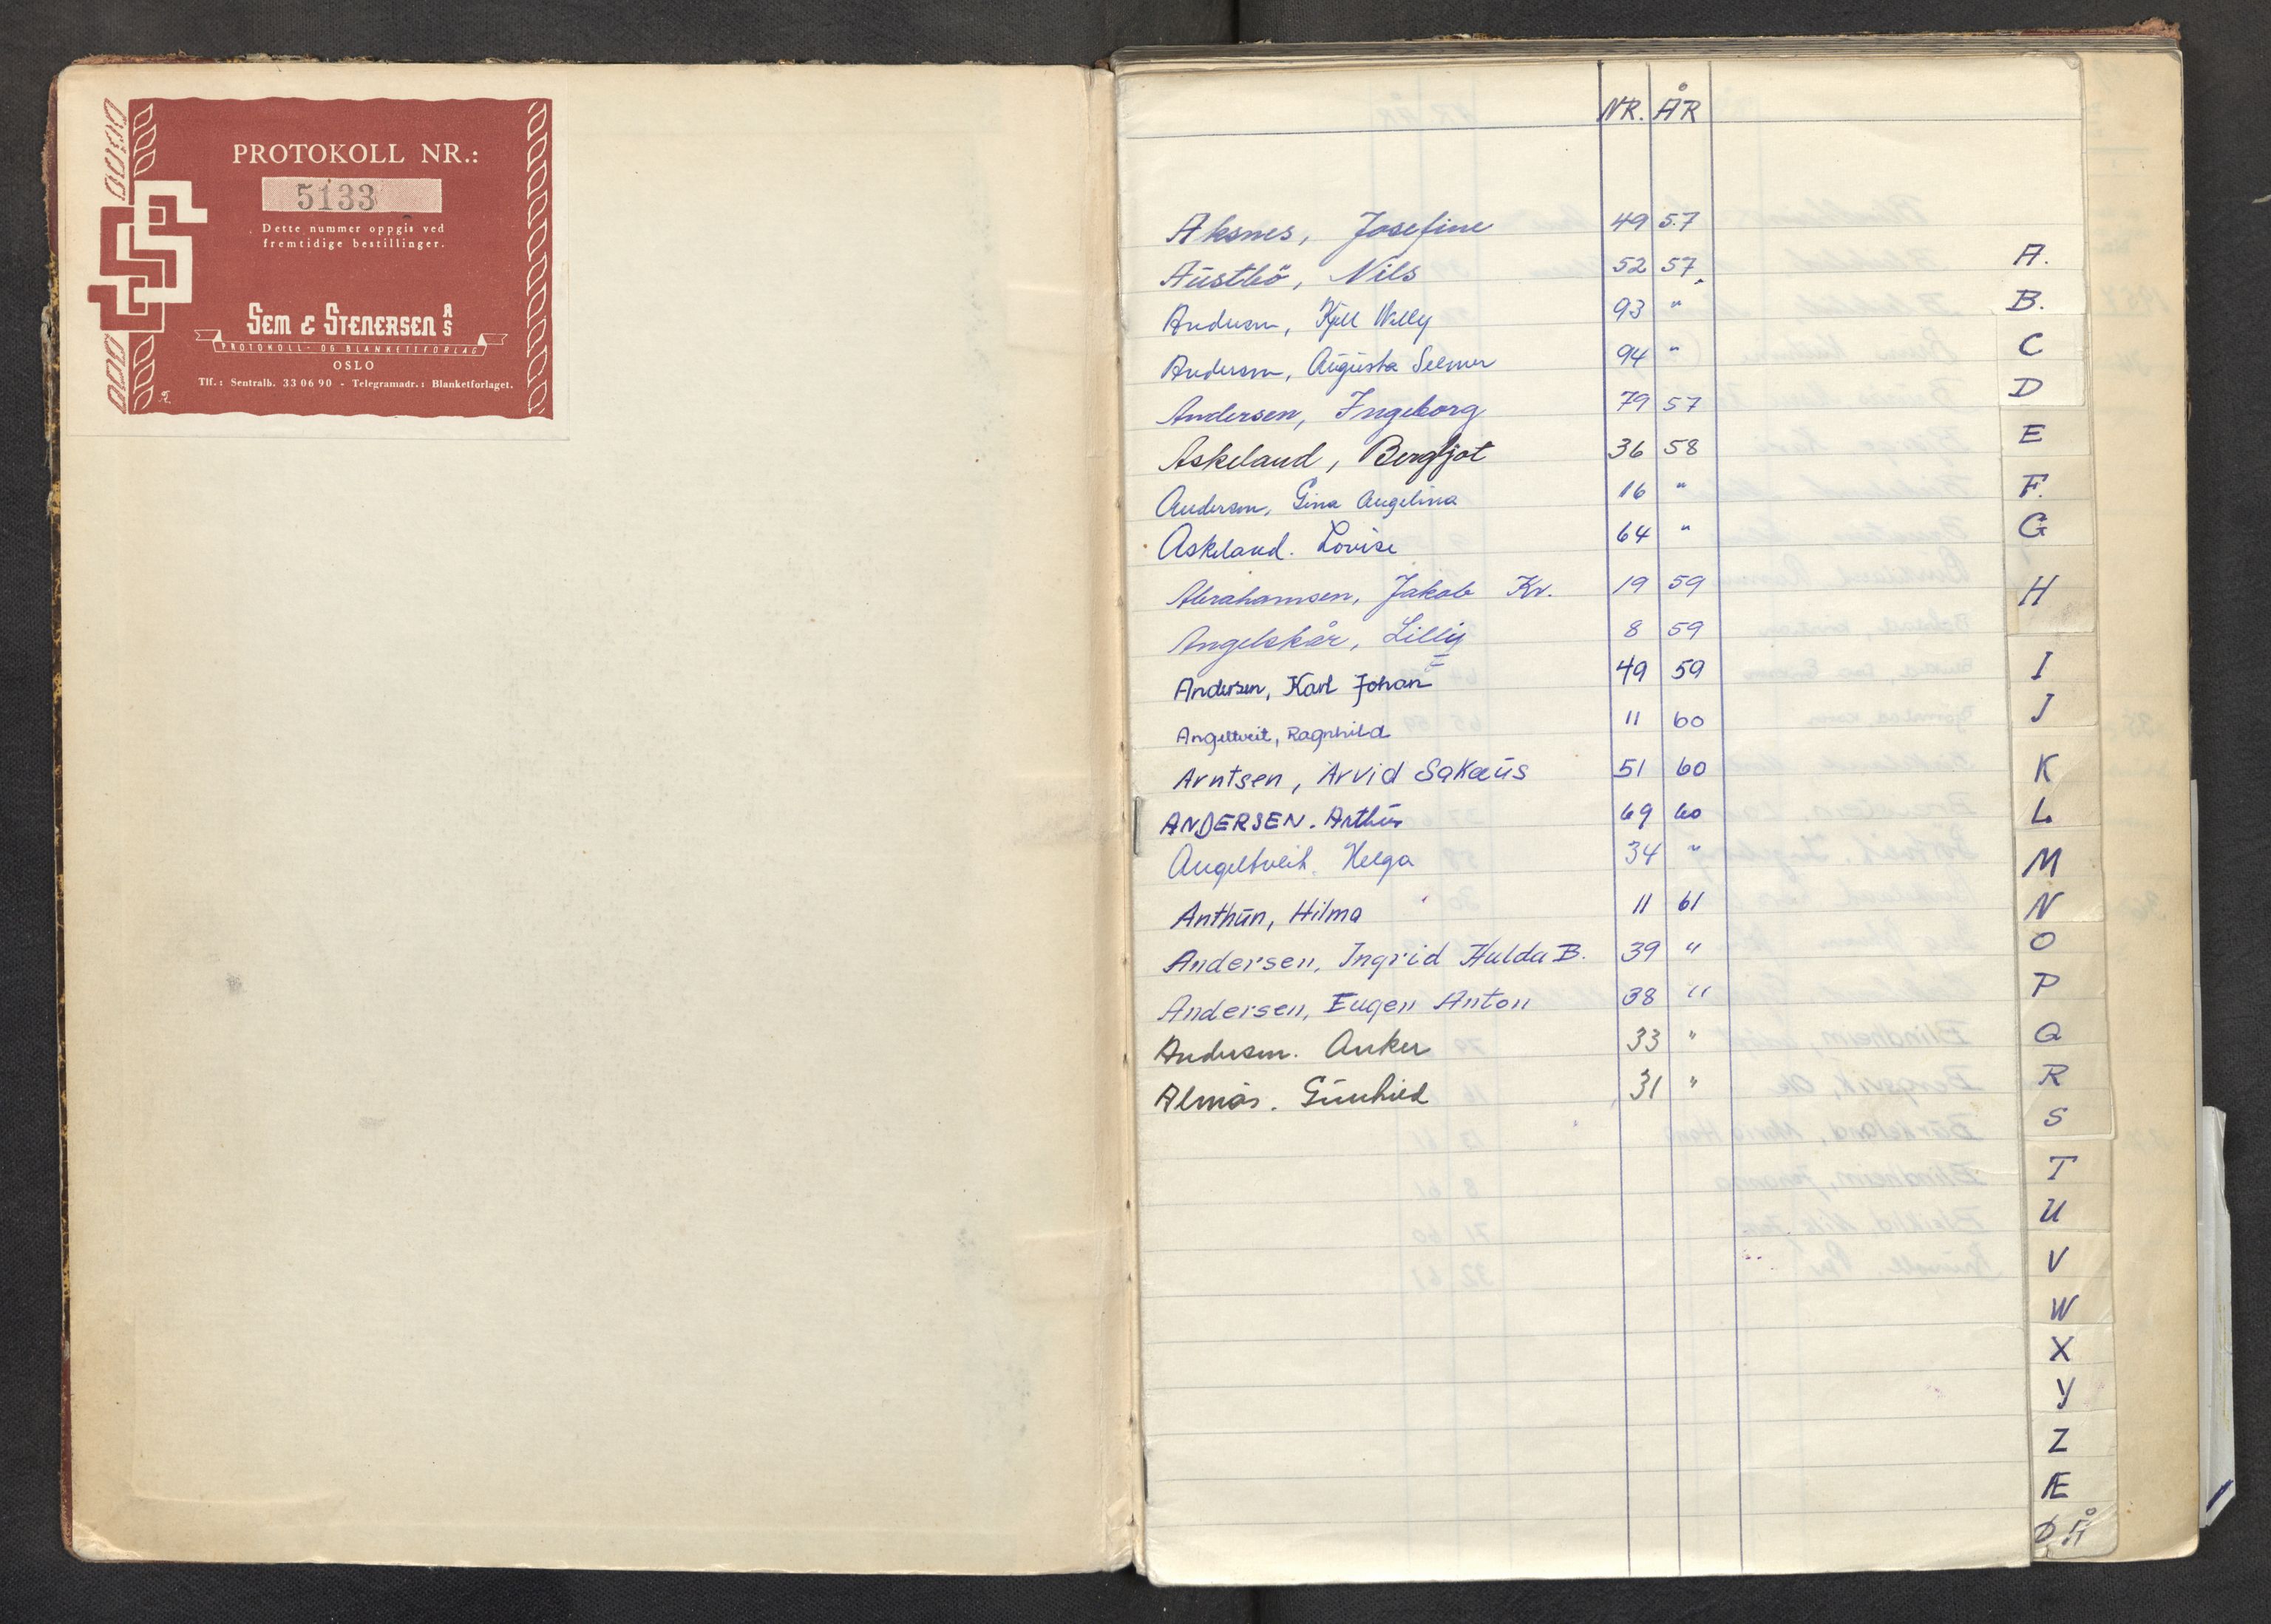 PROTOKOLL NR.:
5133
Dette nummer oppgis ved
fremtidige bestillinger.
SEM & STENERSEN A/S
PROTOKOLL- OG BLANKETTFORLAG
OSLO
Tlf.: Sentralb. 33 06 90 - Telegramadr.: Blanketforlaget.
NR. ÅR
Aksnes, Josefine 49 57
Austbö, Nils 52 57
Andersen, Kjell Willy 93 "
Andersen, Augusta Selmer 94 "
Andersen, Ingeborg 79 57
Askeland, Bergljot 36 58
Andersen, Gina Angelina 16 "
Askeland. Lovise 64 "
Abrahamsen, Jakob Kr. 19 59
Angelskår, Lilly 8 59
Andersen, Karl Johan 49 59
Angeltveit, Ragnhild 11 60
Arntsen, Arvid Sakæus 51 60
ANDERSEN. Arthur 69 60
Angeltveit. Helga 34 "
Anthun, Hilma 11 61
Andersen, Ingrid Hulda B. 39 "
Andersen, Eugen Anton 38 "
Andersen. Anker 33 "
Almås. Gunhild 31 "
A.
B.
C
D
E
F.
G
H
I
J
K
L
M
N
O
P
Q
R
S
T
U
V
W
X
Y
Z
Æ
Ø Å